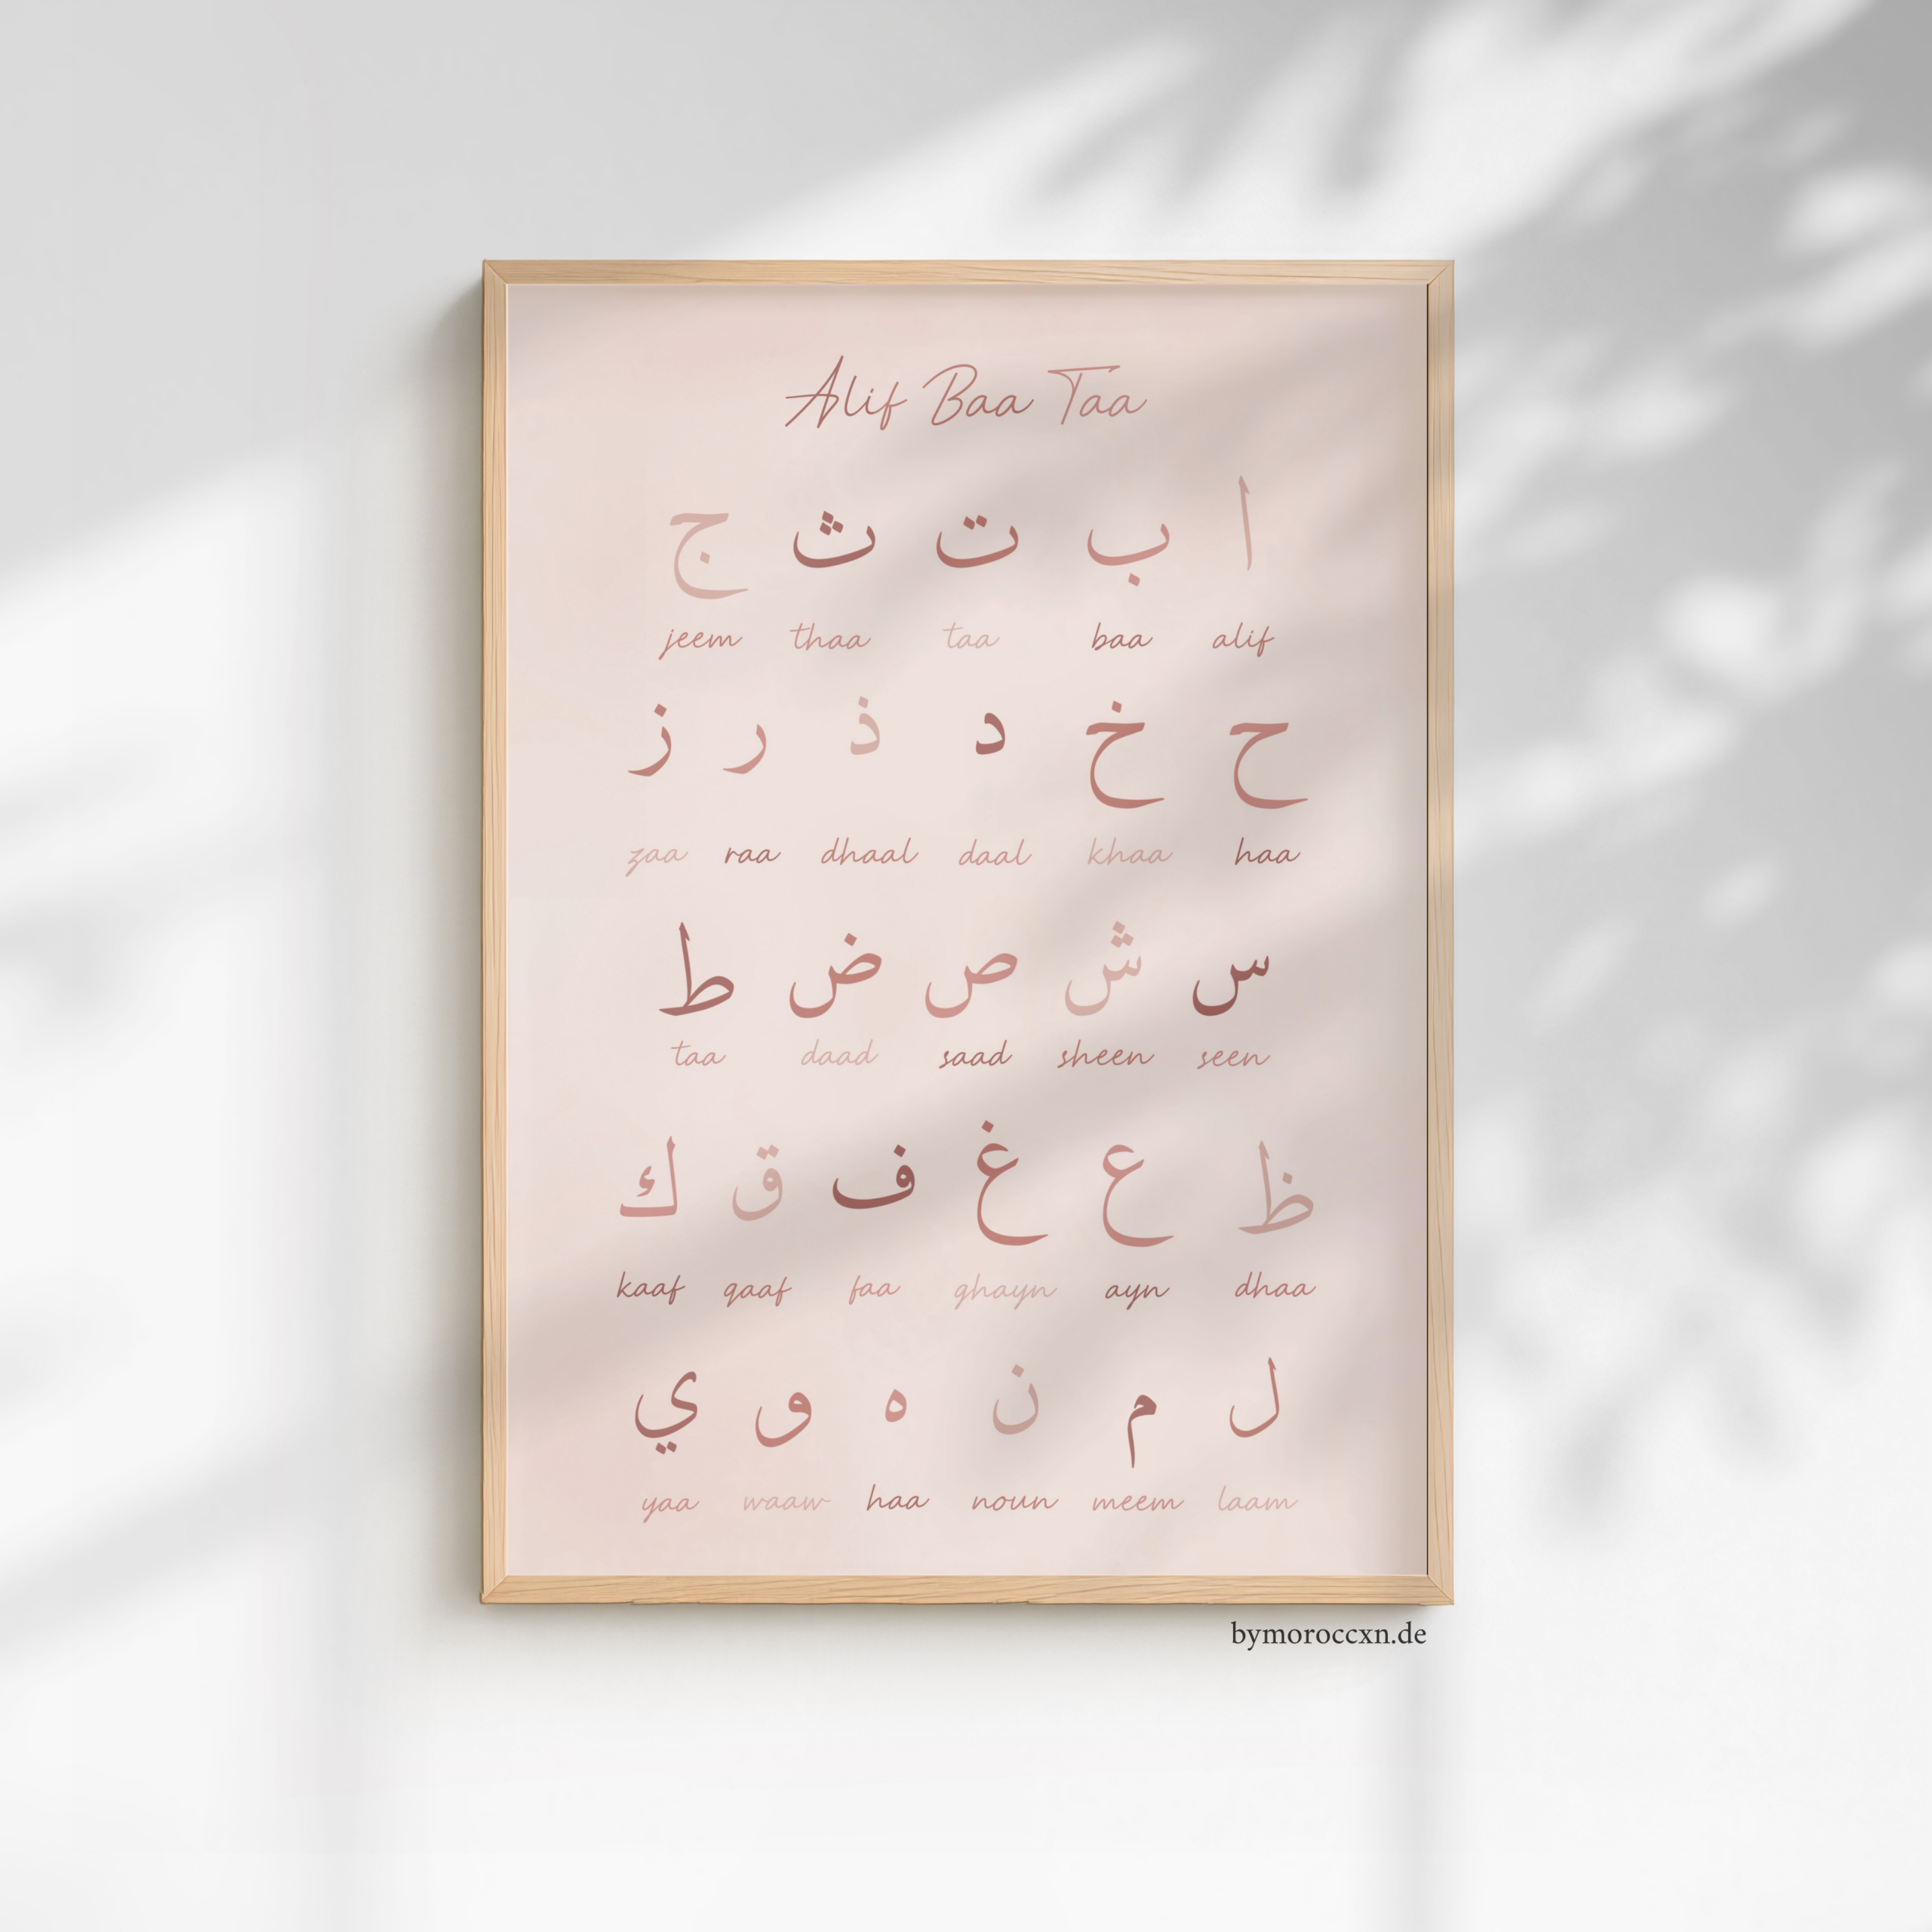 Alif Baa Taa
ا ب ت ث ج
alif baa taa thaa jeem
ح خ د ذ ر ز
haa khaa daal dhaal raa zaa
س ش ص ض ط
seen sheen saad daad taa
ظ ع غ ف ق ك
dhaa ayn ghayn faa qaaf kaaf
ل م ن ه و ي
laam meem noun haa waaw yaa
bymoroccxn.de